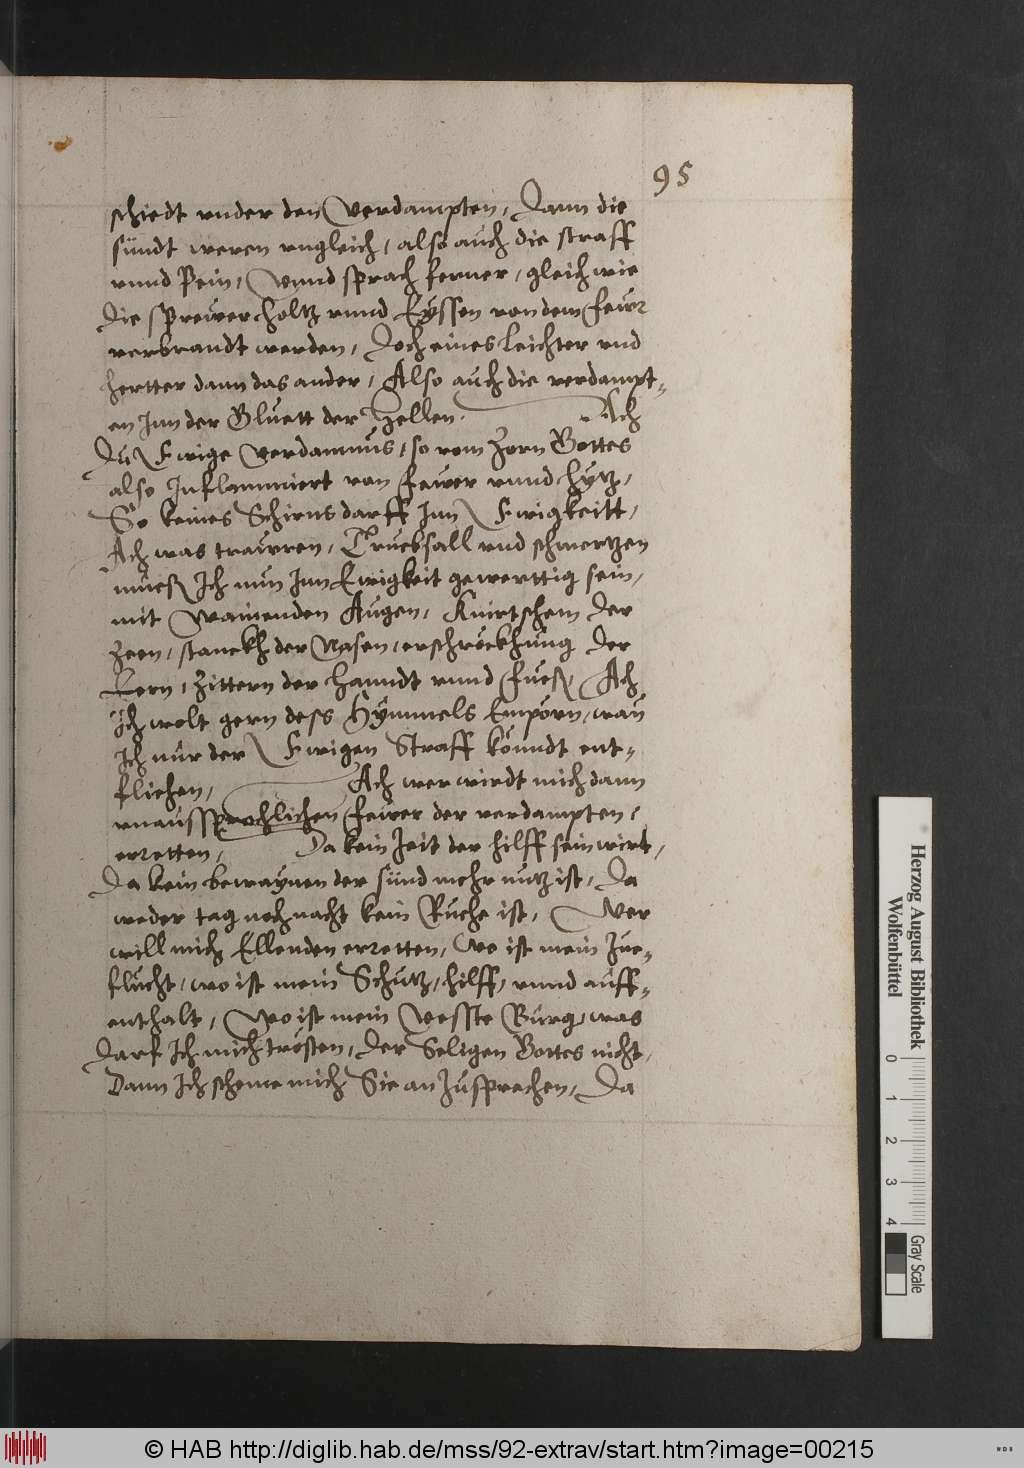 95
schiedt vnder den Verdampten, Dann die
sündt weren vngleich, also auch die straff
vnnd Pein, Vnnd sprach ferner, gleich wie
die sprewer holtz vnnd Eyssen von dem fewr
verbrandt werden, Doch eines leichter vnd
hertter dann das ander, Also auch die verdampt-
en Inn der Gluett der Hellen. Ach
Du Ewige Verdamnus, so vom Zorn Gottes
also Inflammiert von fewer vnnd hytz,
So keines Schirns darff Inn Ewigkeitt,
Ach was trawren, Truebsall vnd schmertzen
mueß Ich nun Inn Ewigkeit gewerttig sein,
mit Wainenden Augen, Knirtschem der
Zeen, stanckh der Nasen, erschröckhung der
Oern, Zittern der hanndt vnnd Fueß, Ach
Ich wolt gern dess Hymmels Emporn, wan
Ich nur der Ewigen Straff könndt ent-
fliehen, Ach wer wirdt mich dann
vnaussprechlichen fewer der verdampten,
erretten, Da kein Zeit der hilff sein wirt,
Da kein bewaynen der sünd mehr nutz ist, Da
weder tag noch nacht kein Ruehe ist, Wer
will mich Ellenden erretten, Wo ist mein Zue-
flucht, wo ist mein Schutz, hilff, vnnd auff-
enthalt, Wo ist mein Vesste Burg, was
darf Ich mich trösten, der Seligen Gottes nicht,
Dann Ich scheme mich Sie an Zusprechen, Da
Herzog August Bibliothek
Wolfenbüttel
0 1 2 3 4
Gray Scale
© HAB http://diglib.hab.de/mss/92-extrav/start.htm?image=00215